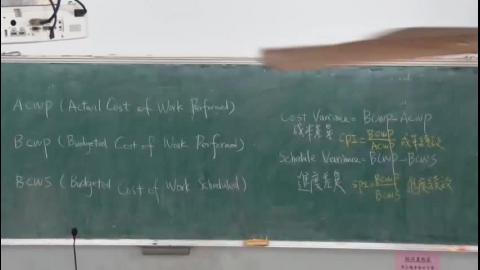 ACWP (Actual Cost of Work Performed)
BCWP (Budgeted Cost of Work Performed)
BCWS (Budgeted Cost of Work Scheduled)
Cost Variance = BCWP - ACWP
成本差異 CPI = BCWP/ACWP 成本績效
Schedule Variance = BCWP - BCWS
進度差異 SPI = BCWP/BCWS 進度績效